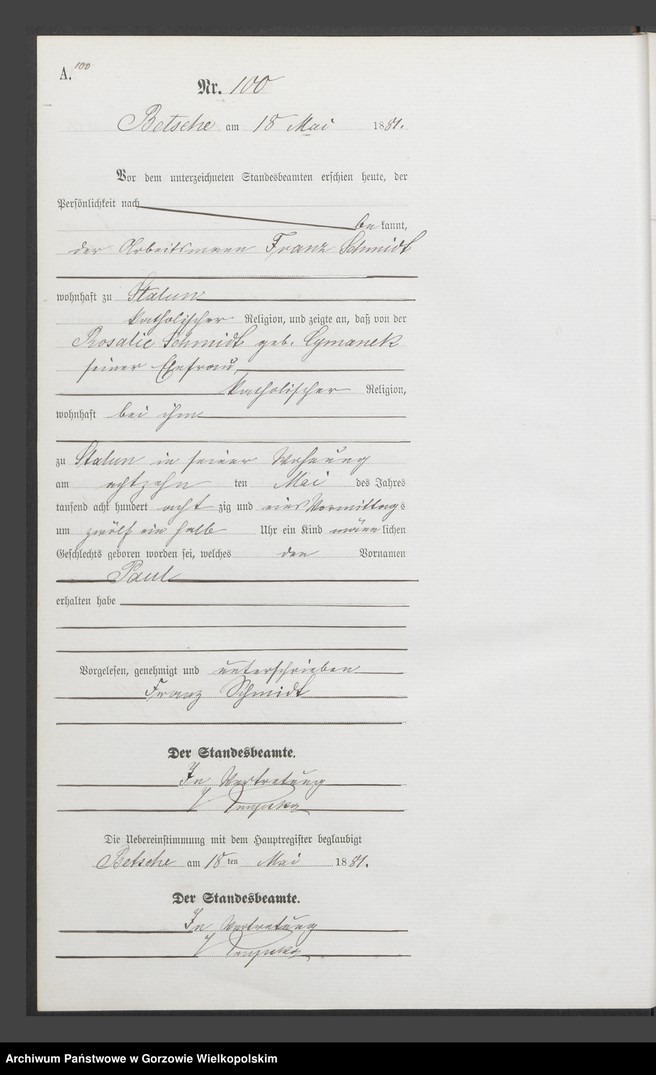 A. 100
Nr. 100
Betsche am 18 Mai 1881.
Vor dem unterzeichneten Standesbeamten erschien heute, der
Persönlichkeit nach
be kannt,
der Arbeitsmann Franz Schmidt
wohnhaft zu Stalun
katholischer Religion, und zeigte an, daß von der
Rosalie Schmidt geb. Cymanek
seiner Ehefrau,
katholischer Religion,
wohnhaft bei ihm
zu Stalun in seiner Wohnung
am achtzehn ten Mai des Jahres
tausend acht hundert acht zig und eins Vormittags
um zwölf ein halb Uhr ein Kind männ lichen
Geschlechts geboren worden sei, welches den Vornamen
Paul
erhalten habe
Vorgelesen, genehmigt und unterschrieben
Franz Schmidt
Der Standesbeamte.
In Vertretung
Die Uebereinstimmung mit dem Hauptregister beglaubigt
Betsche am 18 ten Mai 1881.
Der Standesbeamte.
In Vertretung
Archiwum Państwowe w Gorzowie Wielkopolskim